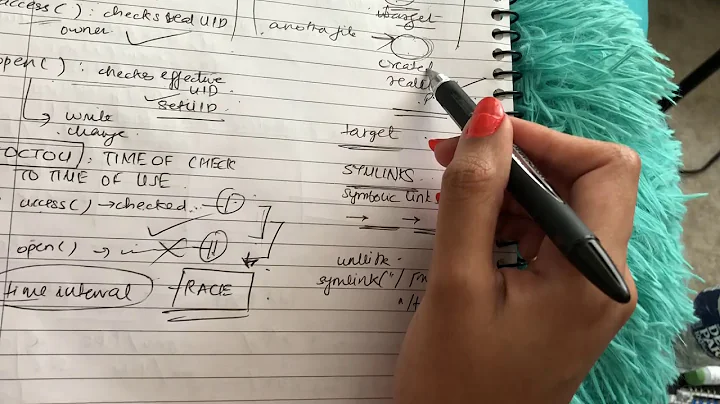 access() : checks real UID
owner
open() : checks effective
UID
SETUID
write
change
TOCTOU : TIME OF CHECK
TO TIME OF USE
access() → checked
I
open() →
II
time interval → RACE
target
another file
created
target
SYMLINKS
symbolic link
→ →
unlink
symlink("/
"/t